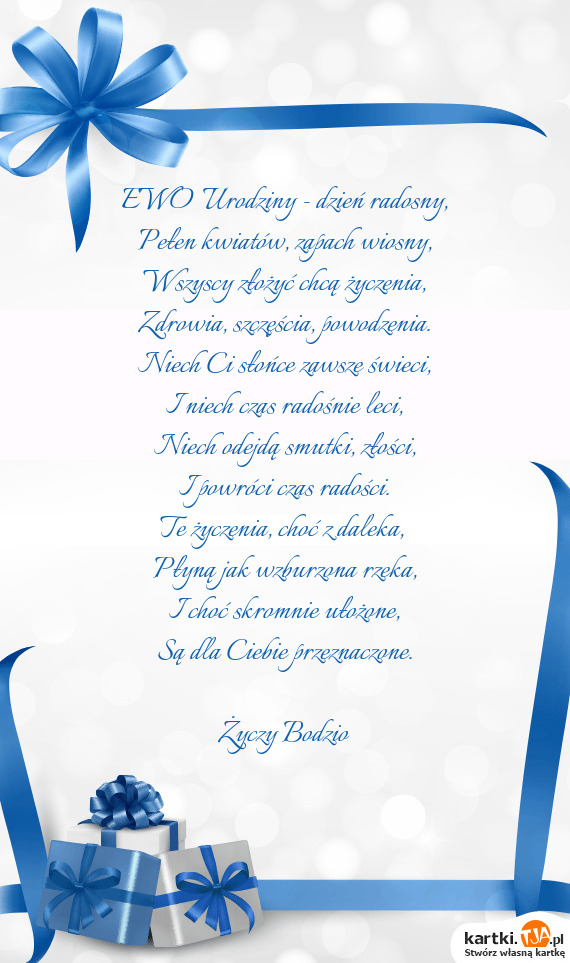 EWO Urodziny - dzień radosny,
Pełen kwiatów, zapach wiosny,
Wszyscy złożyć chcą życzenia,
Zdrowia, szczęścia, powodzenia.
Niech Ci słońce zawsze świeci,
I niech czas radośnie leci,
Niech odejdą smutki, złości,
I powróci czas radości.
Te życzenia, choć z daleka,
Płyną jak wzburzona rzeka,
I choć skromnie ułożone,
Są dla Ciebie przeznaczone.
Życzy Bodzio
kartki.TJA.pl
Stwórz własną kartkę